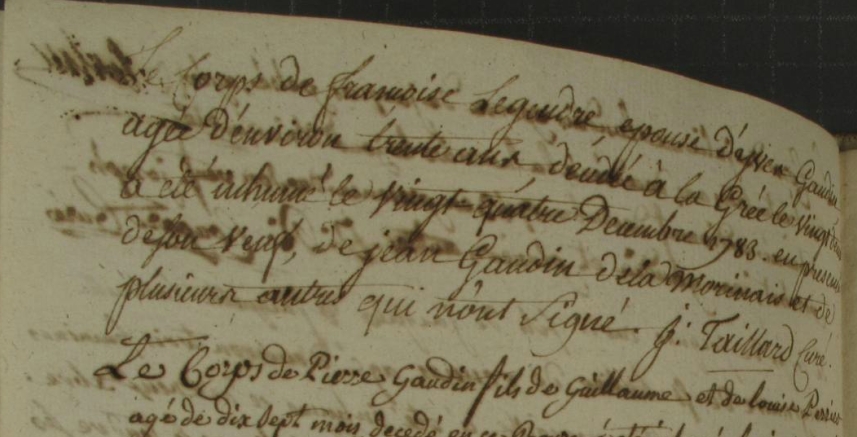 Le Corps de francoise Legendre, epouse D'yves Gaudin
agée D'environ trente ans dcédée à la Grée le Vingt deux
a été inhumé le Vingt-quatre Decembre 1783. en presence
de son Veuf, de jean Gaudin dela Morinais et de
plusieurs autres qui n'ont Signé. J: Taillard Curé.
Le Corps de Pierre Gaudin fils de Guillaume et de louise Perrier
agé de dix sept mois decedé en ce Bourg